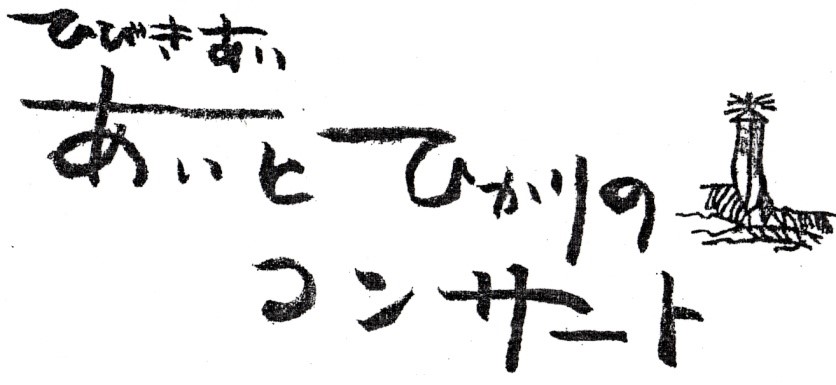 ひびきあい
あいとひかりの
コンサート